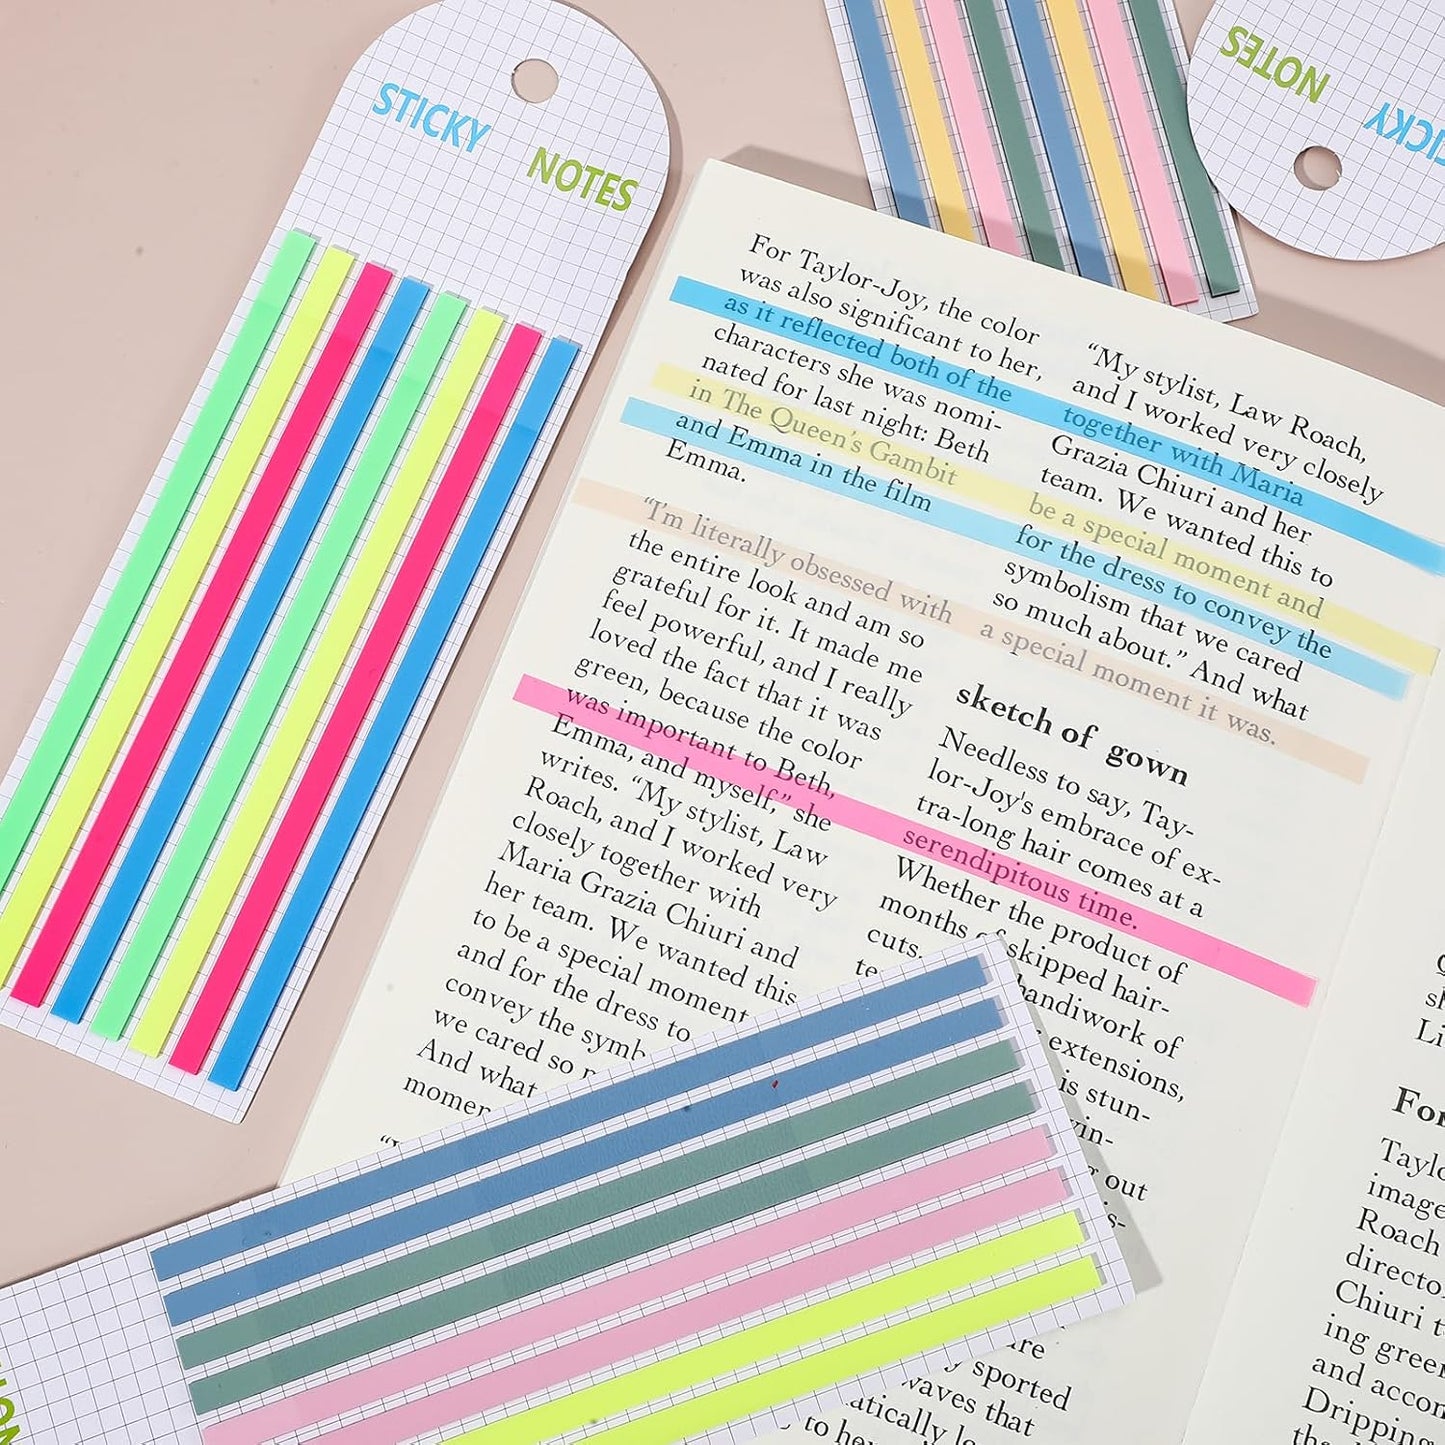 STICKY
NOTES
NOTES
STICKY
For Taylor-Joy, the color
was also significant to her,
as it reflected both of the
characters she was nomi-
nated for last night: Beth
in The Queen's Gambit
and Emma in the film
Emma.
"I'm literally obsessed with
the entire look and am so
grateful for it. It made me
feel powerful, and I really
loved the fact that it was
green, because the color
was important to Beth,
Emma, and myself," she
writes. "My stylist, Law
Roach, and I worked very
closely together with
Maria Grazia Chiuri and
her team. We wanted this
to be a special moment
and for the dress to
convey the symb
we cared so
And what
momen
"My stylist, Law Roach,
and I worked very closely
together with Maria
Grazia Chiuri and her
team. We wanted this to
be a special moment and
for the dress to convey the
symbolism that we cared
so much about." And what
a special moment it was.
sketch of gown
Needless to say, Tay-
lor-Joy's embrace of ex-
tra-long hair comes at a
serendipitous time.
Whether the product of
months of skipped hair-
cuts. handiwork of
te extensions,
is stun-
vin-
out
s-
are
sported
waves that
atically lo
to her
Li
For
Taylo
image
Roach
directo
Chiuri t
ing green
and accom
Dripping
the